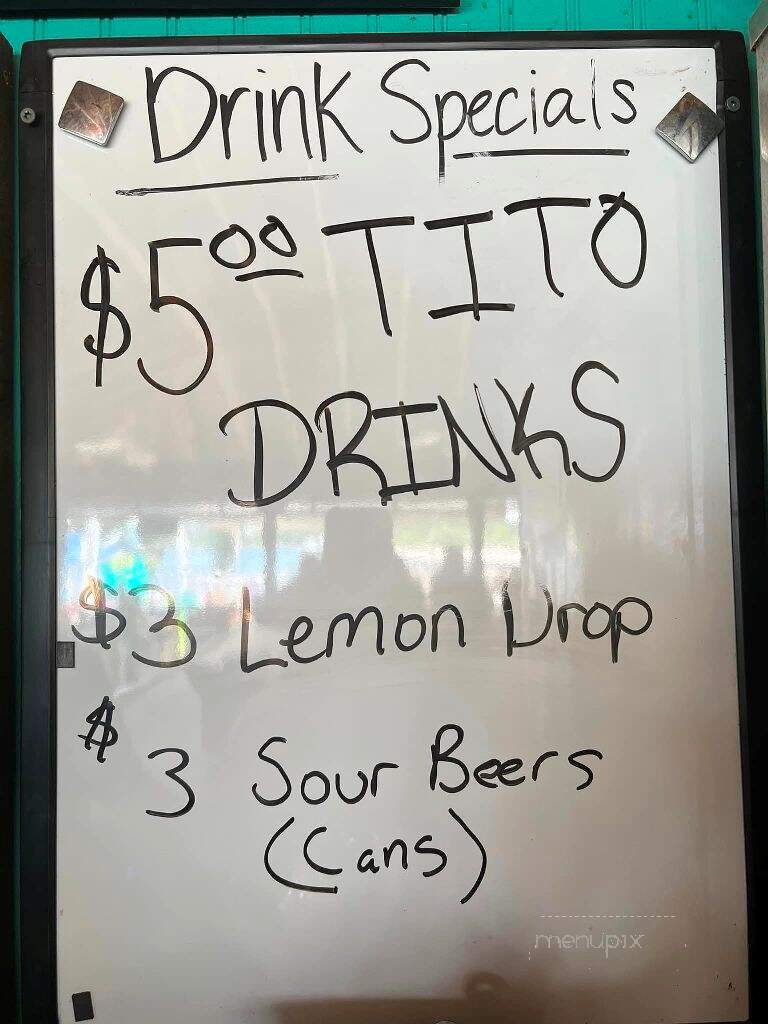 Drink Specials
$5.00 TITO
DRINKS
$3 Lemon Drop
$3 Sour Beers
(Cans)
menupix